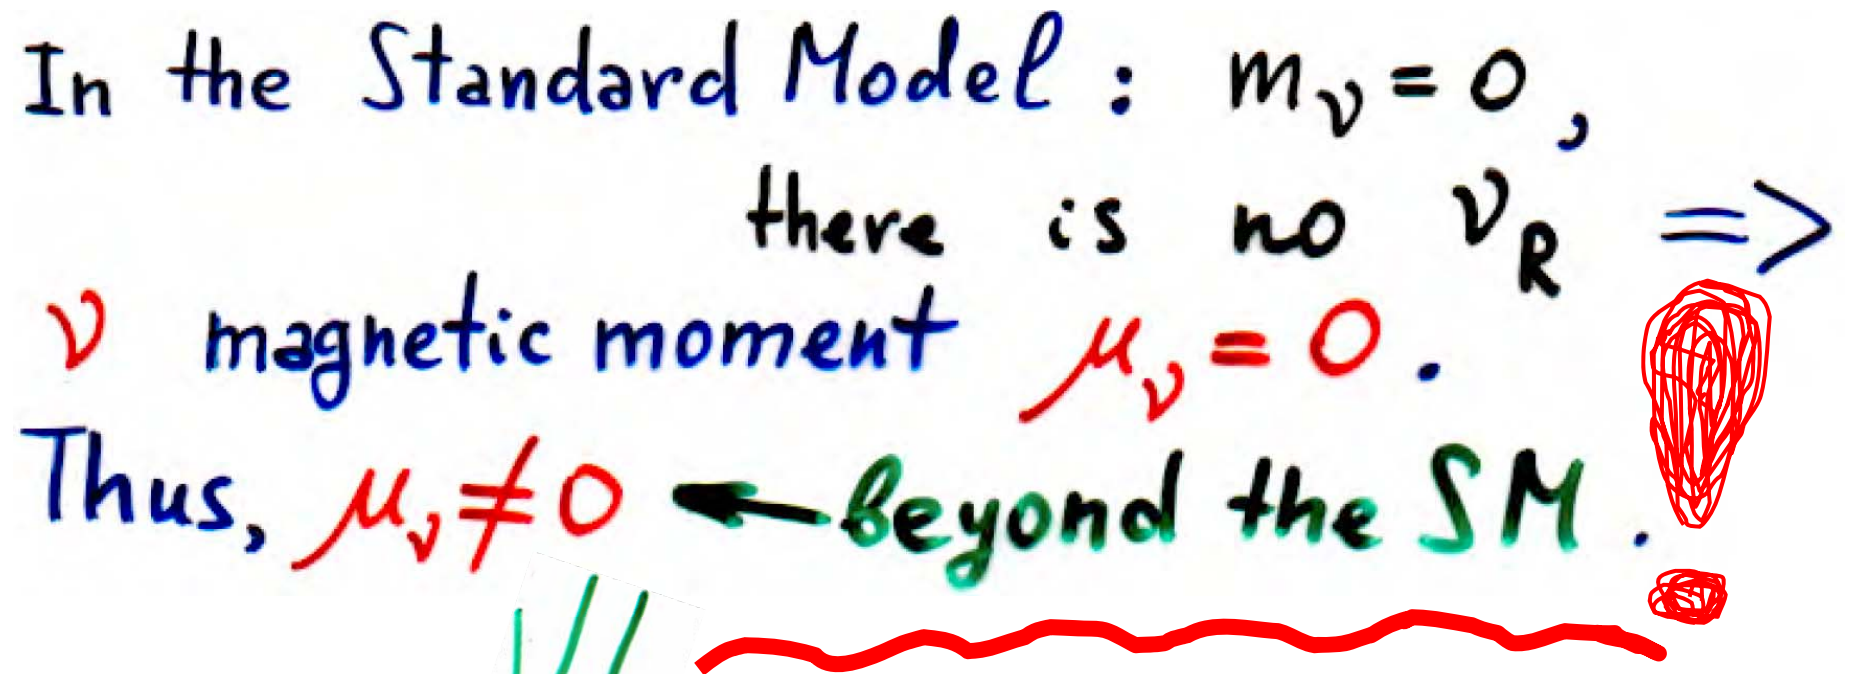 In the Standard Model : mν = 0 ,
there is no νR =>
ν magnetic moment μν = 0 .
Thus, μν ≠ 0 ← beyond the SM . !